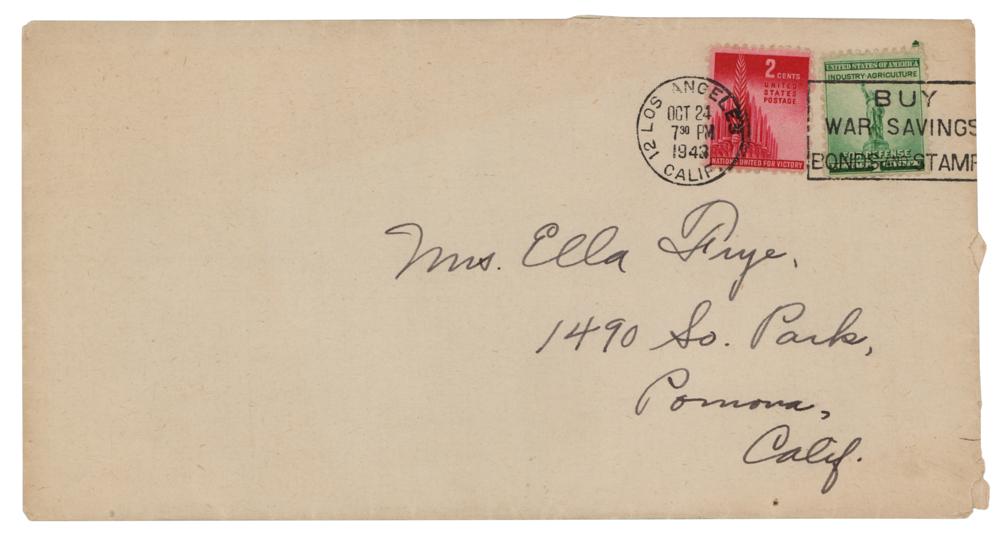 LOS ANGELES
OCT 24
7 30 PM
1943
12 CALIF.
2 CENTS
UNITED
STATES
POSTAGE
NATIONS UNITED FOR VICTORY
UNITED STATES OF AMERICA
INDUSTRY·AGRICULTURE
DEFENSE
BUY
WAR SAVINGS
BONDS AND STAMP
Mrs. Ella Frye.
1490 So. Park,
Pomona,
Calif.